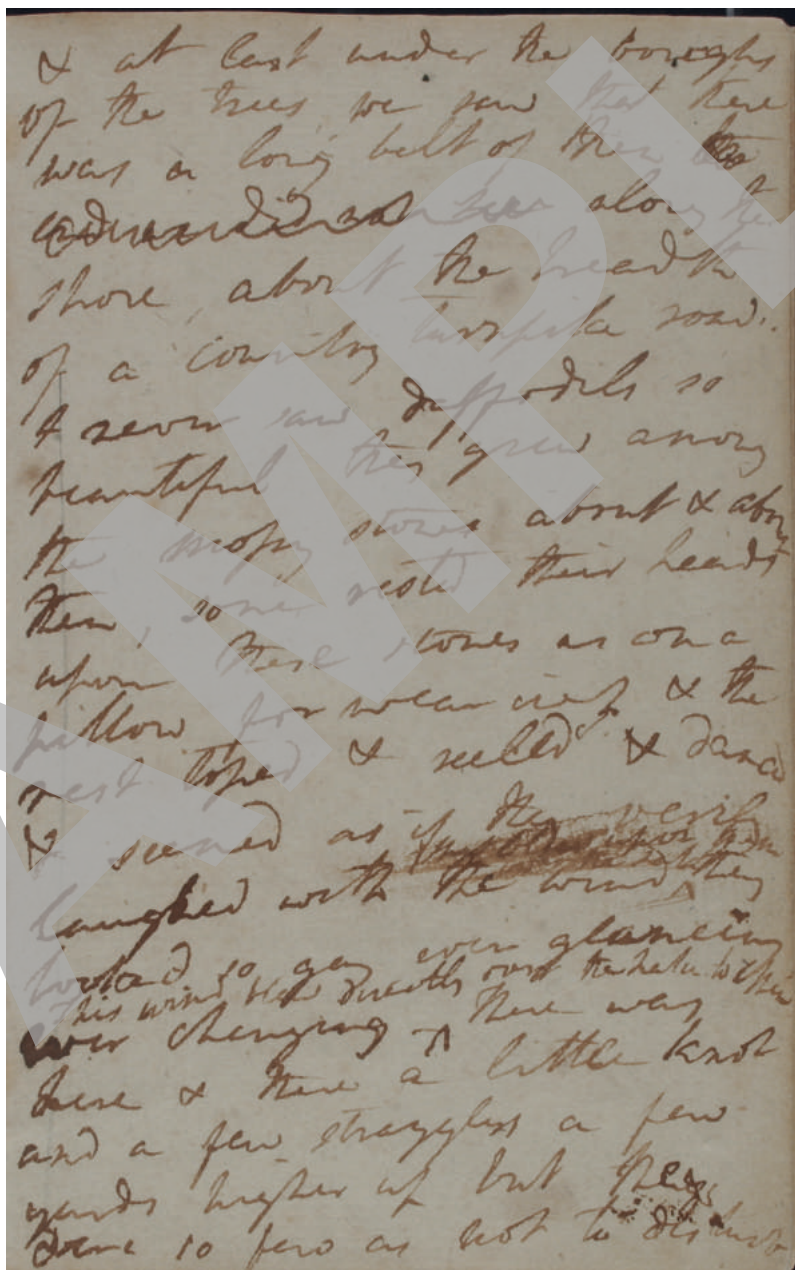 & at last under the boughs
of the trees, we saw that there
was a long belt of them
along the
shore, about the breadth
of a country turnpike road.
I never saw daffodils so
beautiful they grew among
the mossy stones about & about
them, some rested their heads
upon these stones as on a
pillow for weariness & the
rest tossed & reeled & danced
& seemed as if they verily
laughed with the wind they
looked so gay ever glancing
this wind blew directly over the lake to them
ever changing ^ There was
here & there a little knot
and a few stragglers a few
yards higher up but they
were so few as not to disturb
AMPL